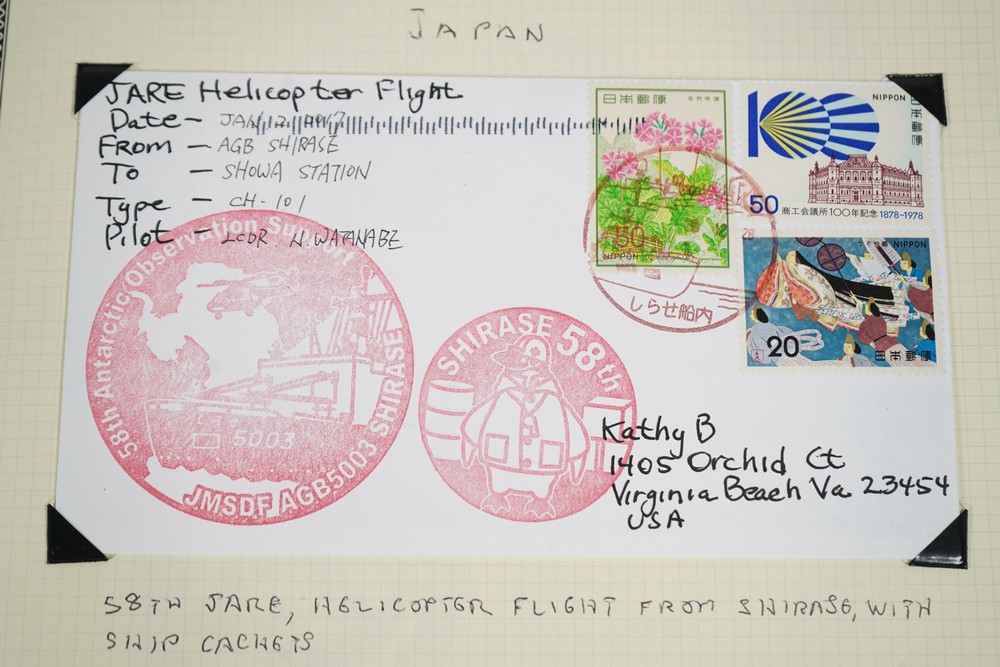 JAPAN
JARE Helicopter Flight
Date - JAN 12 2017
From - AGB SHIRASE
To - SHOWA STATION
Type - CH-101
Pilot - LCDR N. WATANABE
58th Antarctic Observation Support
5003
JMSDF AGB5003 SHIRASE
SHIRASE 58th
日本郵便
自然保護
50
NIPPON
しらせ船内
100
NIPPON
日本郵便
50
商工会議所100年記念 1878-1978
NIPPON
20
日本郵便
Kathy B
1405 Orchid Ct
Virginia Beach Va 23454
USA
58TH JARE, HELICOPTER FLIGHT FROM SHIRASE, WITH
SHIP CACHETS